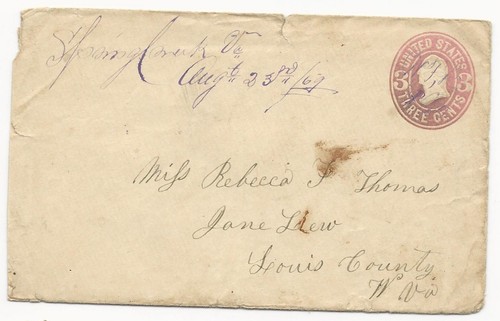 Spring Creek Va
Aug't 23rd /69
UNITED STATES
3 3
THREE CENTS
Miss Rebecca J Thomas
Jane Lew
Louis County
W Va